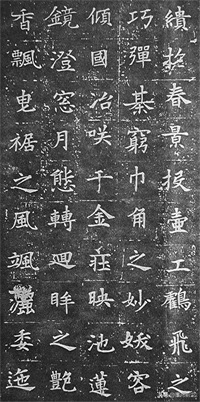 績扵春景投壺工鶴飛之
巧彈棊窮巾角之妙妖容
傾國冶咲千金莊映池蓮
鏡澄窓月態轉廻眸之艷
香飄曳裾之風颯灑委迤